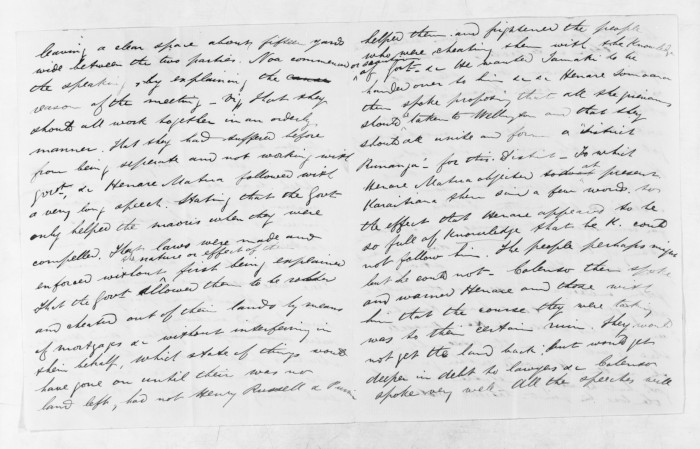 leaving a clear space about fifteen yards
wide between the two parties. Noa commenced
the speaking, by explaining the
reason of the meeting - Viz, that they
should all work together in an orderly
manner. That they had suffered before
from being seperate and not working with
Govt, &c Henare Matua followed with
a very long speech. Stating that the Govt
only helped the maoris when they were
compelled. That laws were made and
the nature or effect of
enforced without first being explained
That the Govt allowed them to be robbed
and cheated out of their lands by means
of mortgages &c without interfering in
their behalf, which state of things would
have gone on until their was no
land left, had not Henry Russell &
helped them and frightened the people
who were cheating them with the knowledge
of Govt - &c He wanted Tamaki to be
handed over to him &c &c Henare
then spoke proposing that all the grievances
should taken to Wellington and that they
should all unite and form a "district
Runanga" for this District - To which
Henare Matua objected at present
Karaitiana then said a few words, to
the effect that Henare appeared to be
so full of Knowledge that he K. could
not follow him. The people perhaps might
but he could not - Colenso then spoke
and warned Henare and those with
him that the course they were taking
was to their certain ruin. They would
not get the land back, but would get
deeper in debt to lawyers &c Colenso
spoke very well. All the speeches will